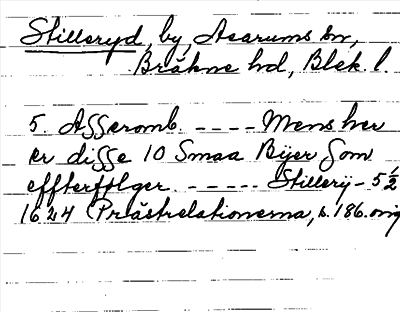 Stilleryd, by, Asarums sn,
Bräkne hd, Blek. l.
5. Asseromb. ---- Mens her
er disse 10 Smaa Bijer som
effterfølger ------ Stillerÿ - 5 1/2
1624 (Prästrelationerna, s. 186. orig